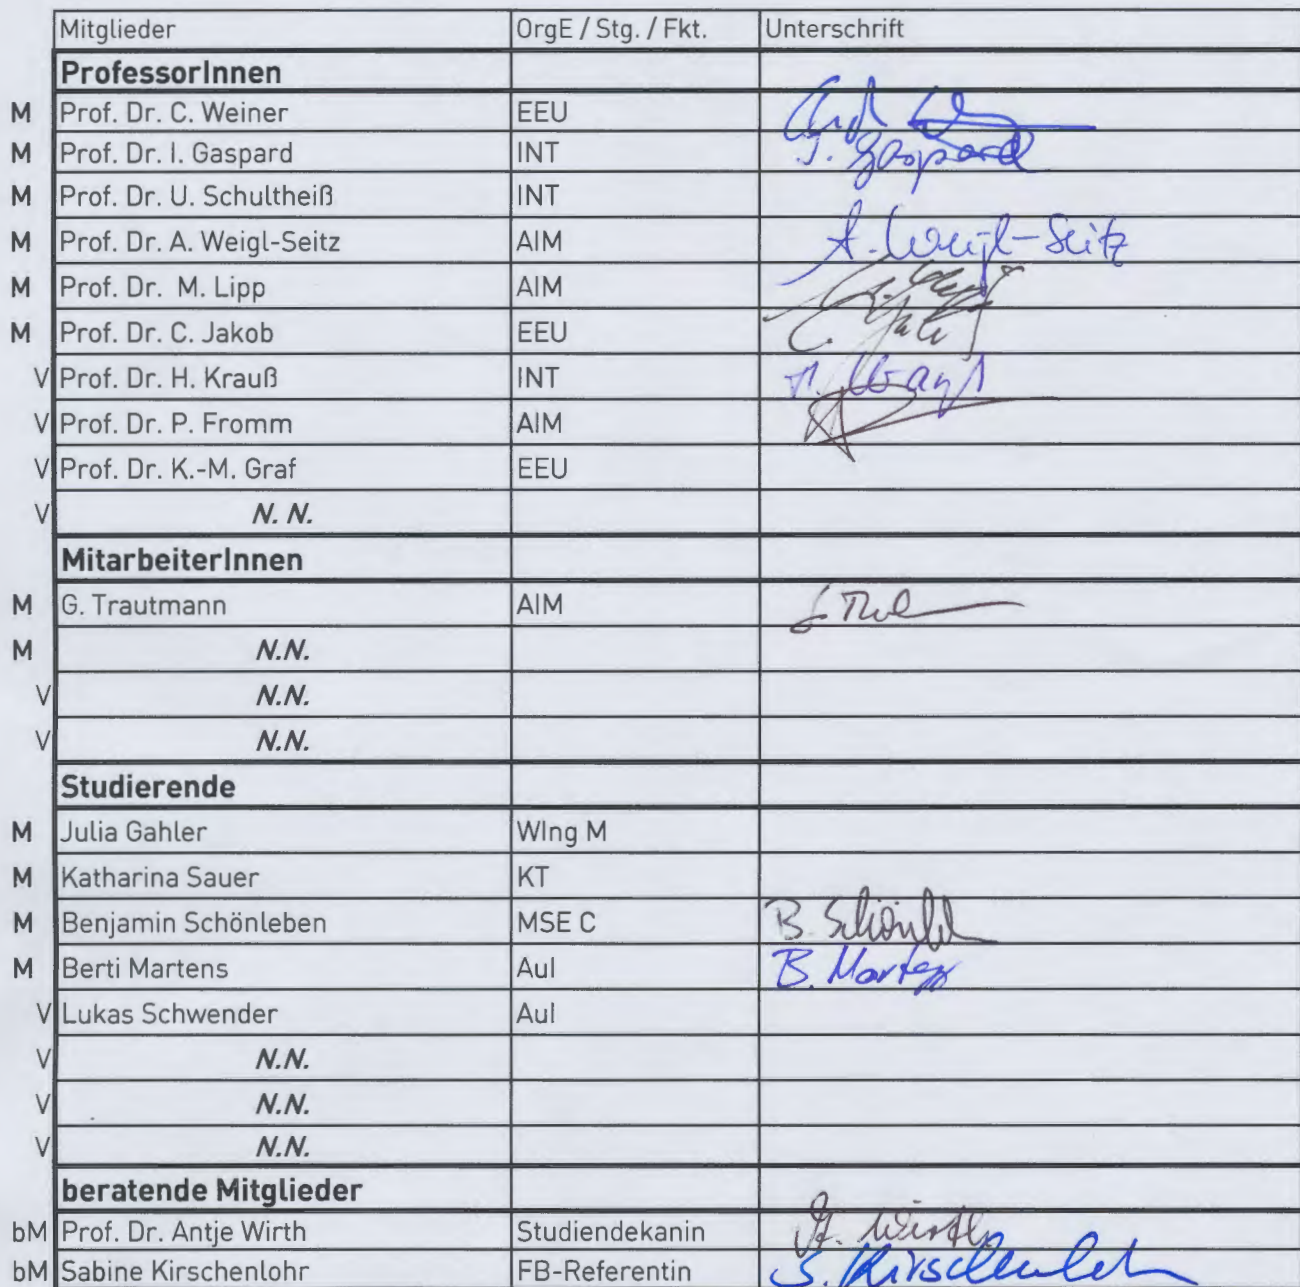 Mitglieder OrgE / Stg. / Fkt. Unterschrift
ProfessorInnen
M Prof. Dr. C. Weiner EEU
M Prof. Dr. I. Gaspard INT I. Gaspard
M Prof. Dr. U. Schultheiß INT
M Prof. Dr. A. Weigl-Seitz AIM A. Weigl-Seitz
M Prof. Dr. M. Lipp AIM
M Prof. Dr. C. Jakob EEU
V Prof. Dr. H. Krauß INT
V Prof. Dr. P. Fromm AIM
V Prof. Dr. K.-M. Graf EEU
V N. N.
MitarbeiterInnen
M G. Trautmann AIM
M N.N.
V N.N.
V N.N.
Studierende
M Julia Gahler WIng M
M Katharina Sauer KT
M Benjamin Schönleben MSE C B. Schönleb
M Berti Martens AuI B. Martens
V Lukas Schwender AuI
V N.N.
V N.N.
V N.N.
beratende Mitglieder
bM Prof. Dr. Antje Wirth Studiendekanin A. Wirth
bM Sabine Kirschenlohr FB-Referentin S. Kirschenloh